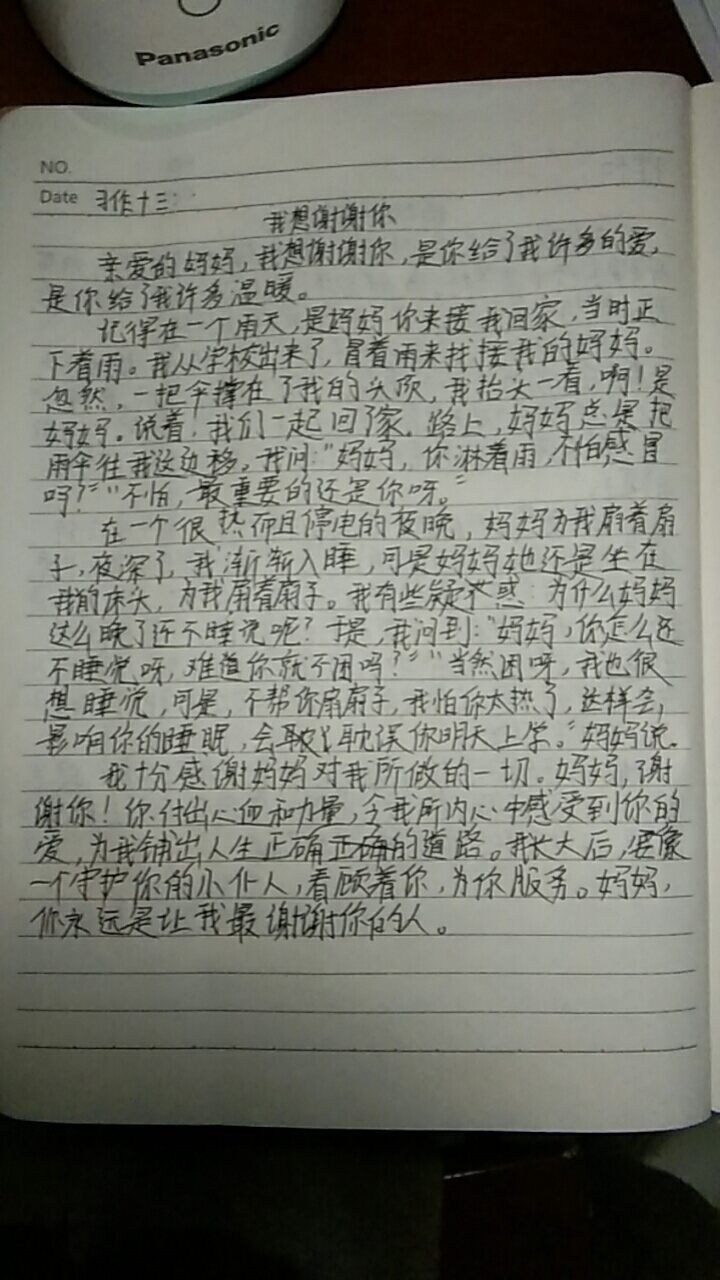 Panasonic
NO.
Date 习作十三:
我想谢谢你
亲爱的妈妈，我想谢谢你，是你给了我许多的爱，
是你给了我许多温暖。
记得在一个雨天，是妈妈你来接我回家，当时正
下着雨。我从学校出来了，冒着雨来找接我的妈妈。
忽然，一把伞撑在了我的头顶，我抬头一看，啊！是
妈妈。说着，我们一起回了家。路上，妈妈总是把
雨伞往我这边移。我问：“妈妈，你淋着雨，不怕感冒
吗？”“不怕，最重要的还是你呀。”
在一个很热而且停电的夜晚，妈妈为我扇着扇
子，夜深了，我渐渐入睡，可是妈妈她还是坐在
我的床头，为我扇着扇子。我有些疑惑：为什么妈妈
这么晚了还不睡觉呢？于是，我问到：“妈妈，你怎么还
不睡觉呀，难道你就不困吗？”“当然困呀，我也很
想睡觉，可是，不帮你扇扇子，我怕你太热了，这样会
影响你的睡眠，会耽误你明天上学。”妈妈说。
我十分感谢妈妈对我所做的一切。妈妈，谢
谢你！你付出心血和力量，令我所内心中感受到你的
爱，为我铺出人生正确的道路。我长大后，要像
一个守护你的小仆人，看顾着你，为你服务。妈妈，
你永远是让我最谢谢你的人。